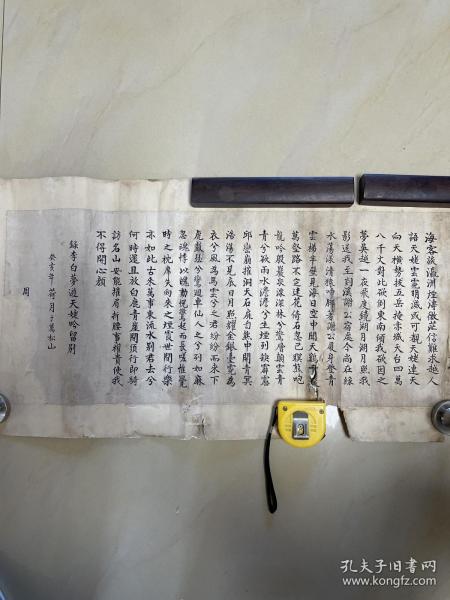 海客談瀛洲烟濤微茫信難求越人
語天姥雲霓明滅或可覩天姥連天
向天橫勢拔五岳掩赤城天台四萬
八千丈對此欲倒東南傾我欲因之
夢吳越一夜飛度鏡湖月湖月照我
影送我至剡溪謝公宿處今尚在淥
水蕩漾清猿啼腳著謝公屐身登青
雲梯半壁見海日空中聞天
萬壑路不定迷花倚石忽已暝熊咆
龍吟殷巖泉慄深林兮驚層巔雲青
青兮欲雨水澹澹兮生烟列缺霹靂
邱巒崩摧洞天石扉訇然中開青冥
浩蕩不見底日月照耀金銀臺霓為
衣兮風為馬雲兮之君紛紛而來下
虎鼓瑟兮鸞回車仙人之兮列如麻
忽魂悸以魄動怳驚起而長嗟惟覺
時之枕席失向來之烟霞世間行樂
亦如此古來萬事東流水別君去兮
何時還且放白鹿青崖間須行即騎
訪名山安能摧眉折腰事權貴使我
不得開心顏
錄李白夢遊天姥吟留別
癸亥年荷月于萬松山
周
孔夫子旧书网
www.kongfz.com